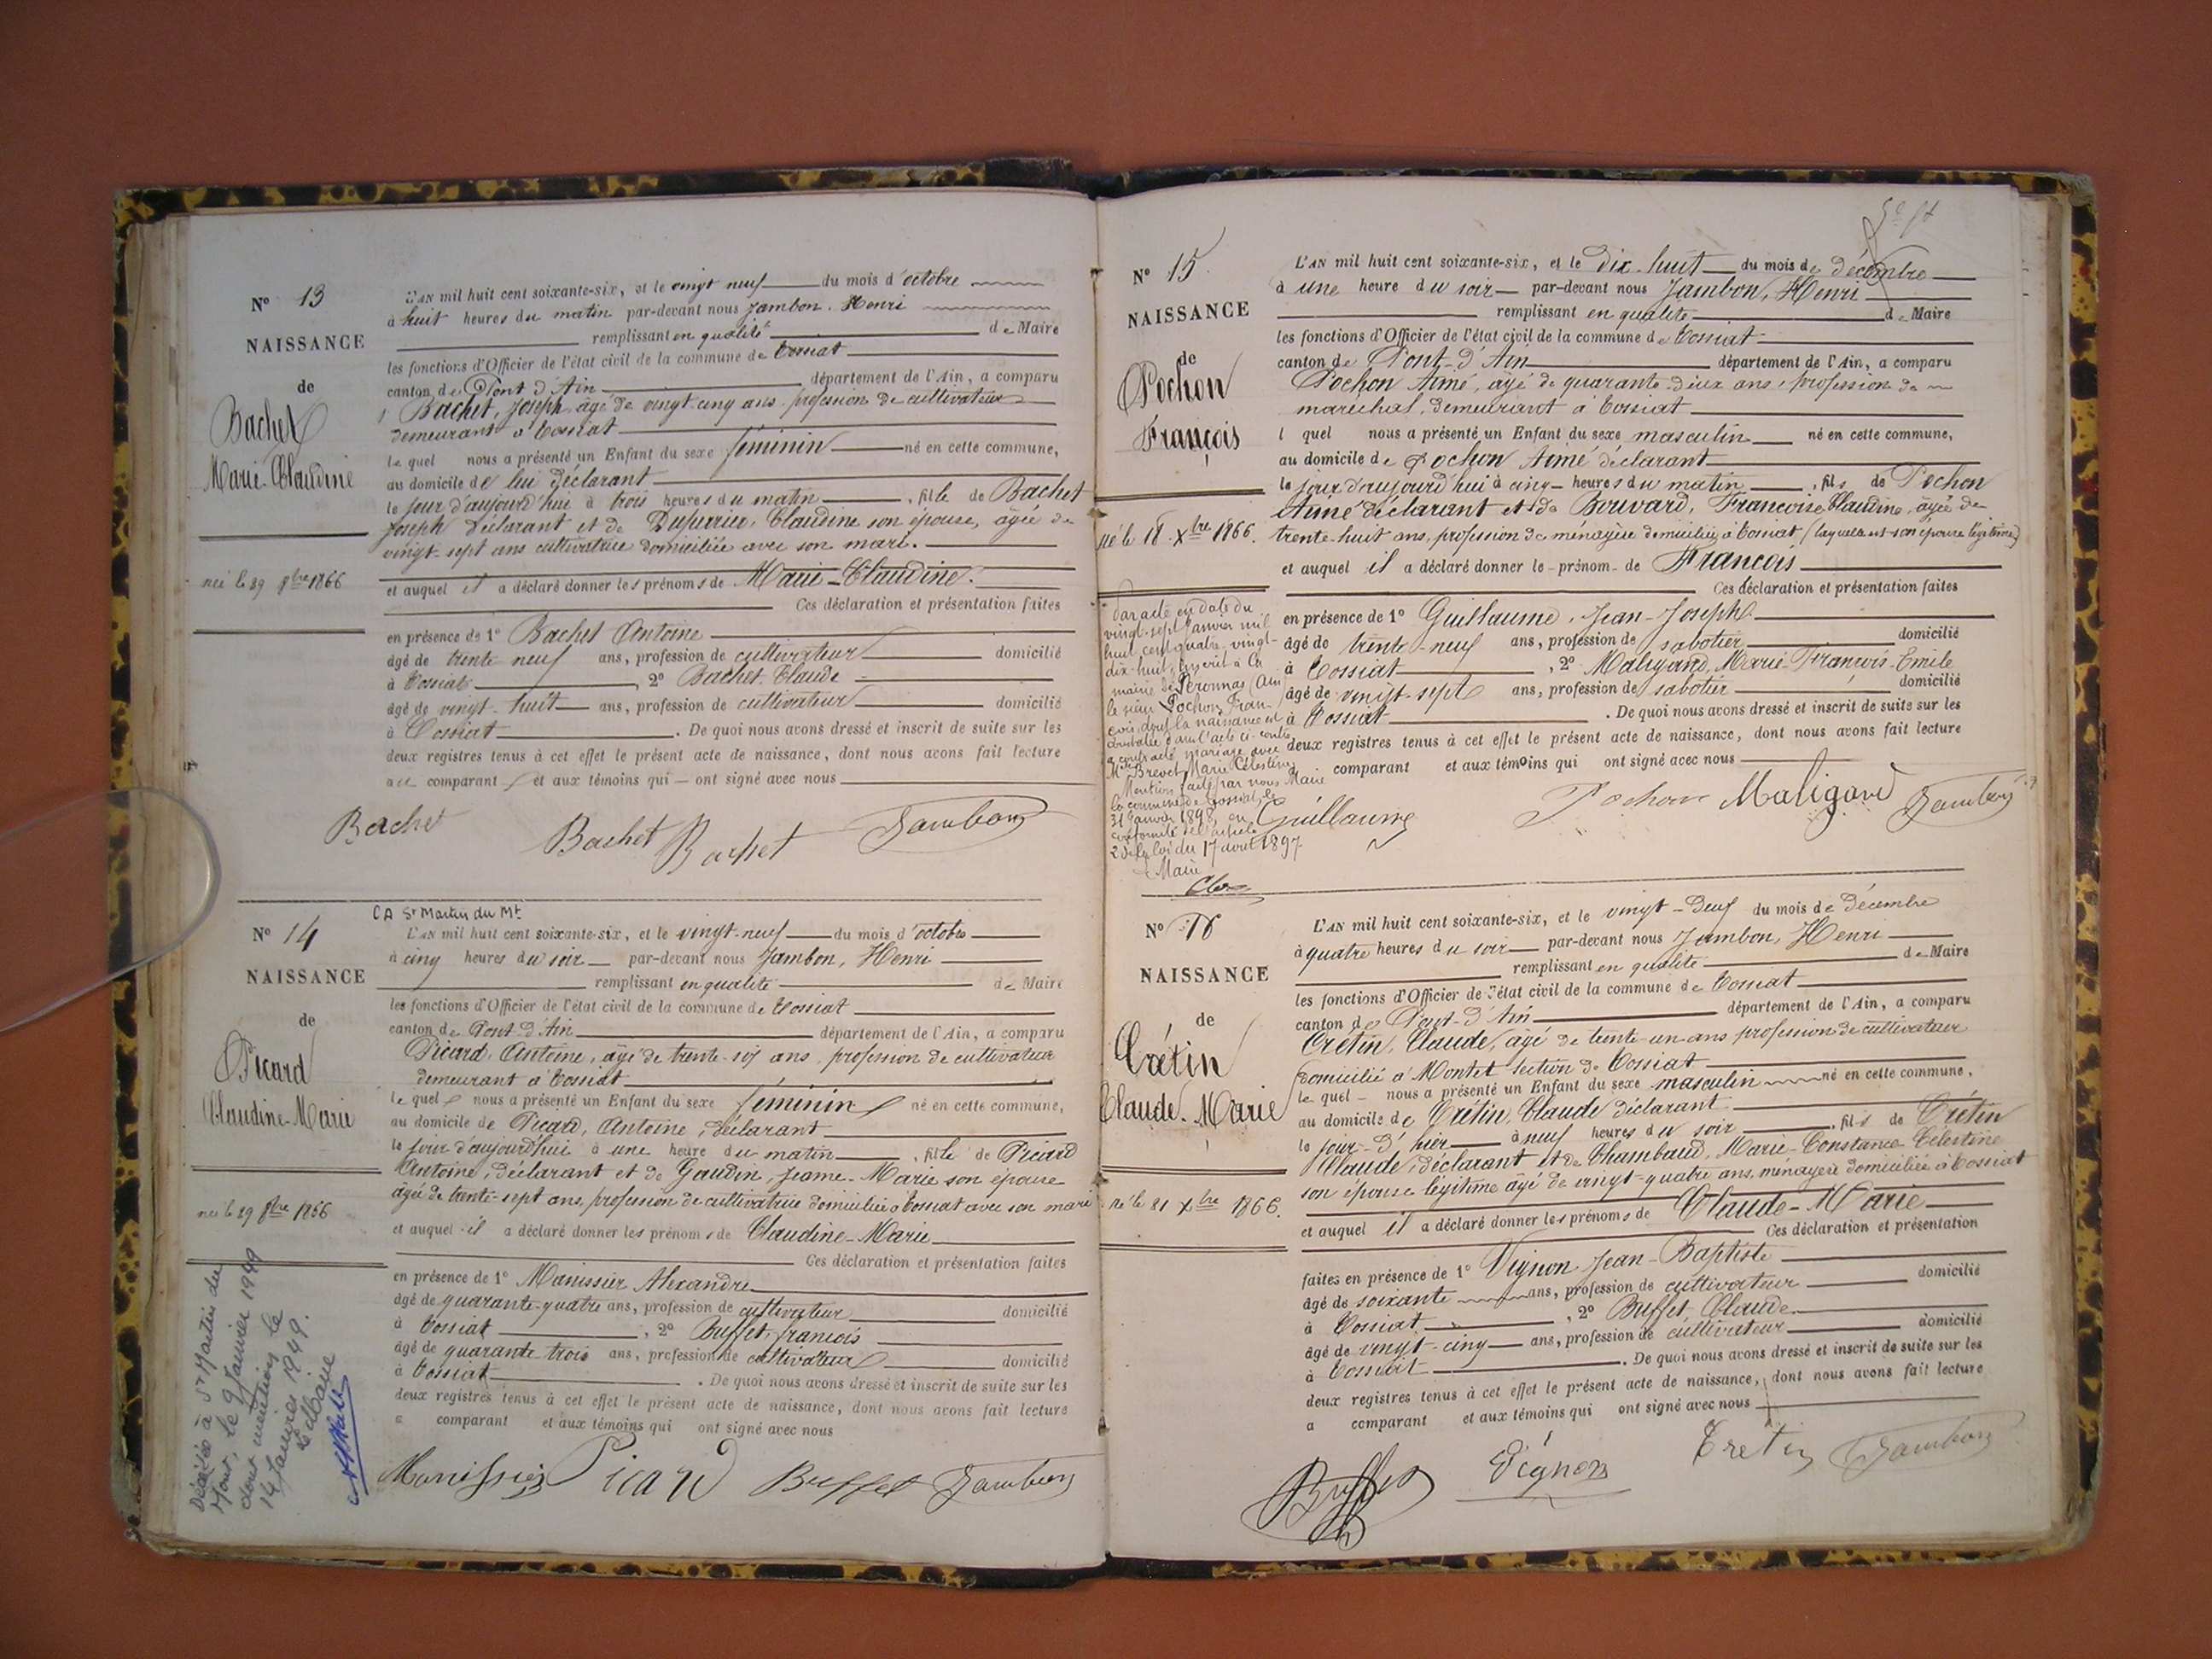 N° 13
NAISSANCE
de
Bachet
Marie-Claudine
née le 29 8bre 1866
L'AN mil huit cent soixante-six, et le vingt neuf du mois d'octobre
à huit heures du matin par-devant nous Jambon. Henri
remplissant en qualité de Maire
les fonctions d'Officier de l'état civil de la commune de Tossiat
canton de Pont d'Ain département de l'Ain, a comparu
Bachet, Joseph, âgé de vingt-cinq ans, profession de cultivateur
demeurant à Tossiat
le quel nous a présenté un Enfant du sexe féminin né en cette commune,
au domicile de lui déclarant
le jour d'aujourd'hui à trois heures du matin, fille de Bachet
Joseph déclarant et de Claudine son épouse, âgée de
vingt-sept ans cultivatrice domiciliée avec son mari.
et auquel il a déclaré donner les prénoms de Marie-Claudine.
Ces déclaration et présentation faites
en présence de 1° Bachet Antoine
âgé de trente neuf ans, profession de cultivateur domicilié
à Tossiat, 2° Bachet. Claude
âgé de vingt-huit ans, profession de cultivateur domicilié
à Tossiat. De quoi nous avons dressé et inscrit de suite sur les
deux registres tenus à cet effet le présent acte de naissance, dont nous avons fait lecture
au comparant et aux témoins qui ont signé avec nous
Bachet Bachet Bachet Jambon
N° 14
NAISSANCE
de
Picard
Claudine-Marie
née le 29 8bre 1866
Décédée à St Martin du
Mont, le 9 Janvier 1949
dont mention le
14 Janvier 1949.
Le Maire
CA St Martin du Mt
L'AN mil huit cent soixante-six, et le vingt-neuf du mois d'octobre
à cinq heures du soir par-devant nous Jambon, Henri
remplissant en qualité de Maire
les fonctions d'Officier de l'état civil de la commune de Tossiat
canton de Pont-d'Ain département de l'Ain, a comparu
Picard, Antoine, âgé de trente-six ans, profession de cultivateur
demeurant à Tossiat
le quel nous a présenté un Enfant du sexe féminin né en cette commune,
au domicile de Picard, Antoine, déclarant
le jour d'aujourd'hui à une heure du matin, fille de Picard
Antoine, déclarant et de Gaudin, Jeanne-Marie son épouse
âgée de trente-sept ans, profession de cultivatrice domiciliée à Tossiat avec son mari
et auquel il a déclaré donner les prénoms de Claudine-Marie
Ces déclaration et présentation faites
en présence de 1° Manissier Alexandre
âgé de quarante-quatre ans, profession de cultivateur domicilié
à Tossiat, 2° Buffet, françois
âgé de quarante-trois ans, profession de cultivateur domicilié
à Tossiat. De quoi nous avons dressé et inscrit de suite sur les
deux registres tenus à cet effet le présent acte de naissance, dont nous avons fait lecture
a comparant et aux témoins qui ont signé avec nous
Manissier Picard Buffet Jambon
N° 15
NAISSANCE
de
Pochon
François
né le 18 Xbre 1866.
Par acte en date du
vingt-sept Janvier mil
huit cent quatre-vingt-
dix-huit, inscrit à la
mairie de Péronnas (Ain)
le sieur Pochon Fran-
çois, dont la naissance est
constatée dans l'acte ci-contre
a contracté mariage avec
Mlle Brevet Marie Célestine
Mention faite par nous Maire
la commune de Tossiat, le
31 Janvier 1898, en
conformité de l'article
2 de la loi du 17 août 1897.
Maire
L'AN mil huit cent soixante-six, et le dix-huit du mois de décembre
à une heure du soir par-devant nous Jambon, Henri
remplissant en qualité de Maire
les fonctions d'Officier de l'état civil de la commune de Tossiat
canton de Pont-d'Ain département de l'Ain, a comparu
Pochon Aimé, âgé de quarante-deux ans, profession de
maréchal, demeurant à Tossiat
l quel nous a présenté un Enfant du sexe masculin né en cette commune,
au domicile de Pochon Aimé déclarant
le jour d'aujourd'hui à cinq heures du matin, fils de Pochon
Aimé déclarant et de Bouvard, Françoise Claudine, âgée de
trente-huit ans, profession de ménagère domiciliée à Tossiat (laquelle est son épouse légitime)
et auquel il a déclaré donner le prénom de François
Ces déclaration et présentation faites
en présence de 1° Guillaume, Jean-Joseph
âgé de trente-neuf ans, profession de sabotier domicilié
à Tossiat, 2° Maligand, Marie-François-Emile
âgé de vingt-sept ans, profession de sabotier domicilié
à Tossiat. De quoi nous avons dressé et inscrit de suite sur les
deux registres tenus à cet effet le présent acte de naissance, dont nous avons fait lecture
comparant et aux témoins qui ont signé avec nous
Guillaume Pochon Maligand Jambon
N° 16
NAISSANCE
de
Crétin
Claude-Marie
né le 21 Xbre 1866.
L'AN mil huit cent soixante-six, et le vingt-deux du mois de décembre
à quatre heures du soir par-devant nous Jambon, Henri
remplissant en qualité de Maire
les fonctions d'Officier de l'état civil de la commune de Tossiat
canton de Pont-d'Ain département de l'Ain, a comparu
Crétin, Claude, âgé de trente-un ans profession de cultivateur
domicilié à Montet section de Tossiat
le quel nous a présenté un Enfant du sexe masculin né en cette commune,
au domicile de Crétin, Claude déclarant
le jour d'hier à neuf heures du soir, fils de Crétin
Claude, déclarant et de Chambaud, Marie-Constance Célestine
son épouse légitime âgé de vingt-quatre ans, ménagère domiciliée à Tossiat
et auquel il a déclaré donner les prénoms de Claude-Marie
Ces déclaration et présentation
faites en présence de 1° Vignon Jean-Baptiste
âgé de soixante ans, profession de cultivateur domicilié
à Tossiat, 2° Buffet, Claude
âgé de vingt-cinq ans, profession de cultivateur domicilié
à Tossiat. De quoi nous avons dressé et inscrit de suite sur les
deux registres tenus à cet effet le présent acte de naissance, dont nous avons fait lecture
a comparant et aux témoins qui ont signé avec nous
Buffet Vignon Crétin Jambon